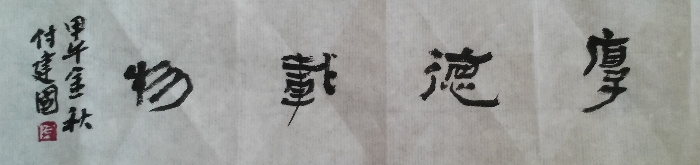 厚德載物
甲午金秋
付建國